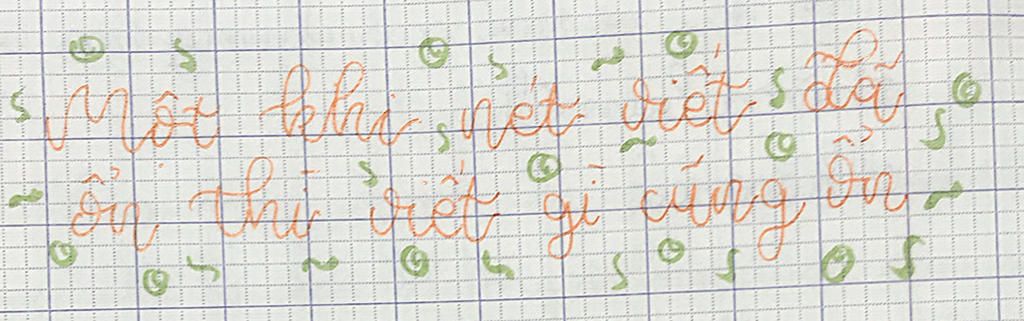 Một khi nét viết đã
ổn thì viết gì cũng ổn